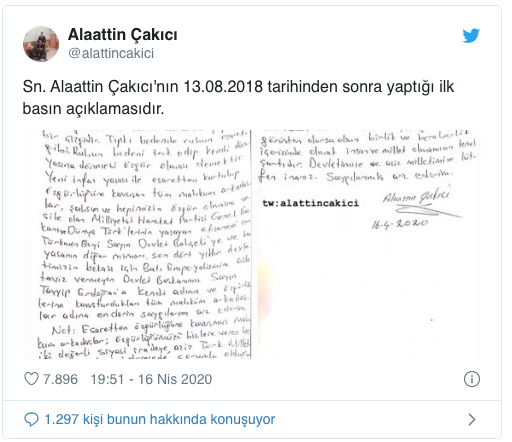 Alaattin Çakıcı
@alattincakici
Sn. Alaattin Çakıcı'nın 13.08.2018 tarihinden sonra yaptığı ilk
basın açıklamasıdır.
bir olgudur. Tıpkı bedende ruhun esareti
gibi Ruhun bedeni terk edip kendi dün
yasına dönmesi özgür olması demektir
Yeni infaz yasası ile esaretten kurtulup
özgürlüğüne kavuşan tüm mahkum arkadaş
lar, şahsım ve hepimizin özgür olmasına ve
sile olan Milliyetçi Hareket Partisi Genel Baş
kanı ve Dünya Türk'lerinin yaşayan efsanesi on
Türkmen Beyi Sayın Devlet Bahçeli'ye ve bu
yasanın diğer mimarı, son dört yıldır devle
timizin bekası için Batı Emperyalizmine bile
taviz vermeyen Devlet Başkanımız Sayın
Tayyip Erdoğan'a kendi adıma ve özgürlük
lerine kavuşturdukları tüm mahkûm arkadaş
lar adına en derin saygılarımı arz ederim.
Not: Esaretten özgürlüğüne kavuşan mah
kum arkadaşlar; özgürlüğümüzü bizlere veren bu
iki değerli siyasi iradeye, aziz Türk Milleti
görüşten olursa olsun birlik ve beraberlik
içerisinde olmak insan ve millet olmanın temel
şartıdır. Devletimize ve aziz milletimize lüt
fen inanız. Saygılarımla arz ederim.
Alaattin Çakıcı
16-4-2020
tw:alattincakici
7.896 19:51 - 16 Nis 2020
1.297 kişi bunun hakkında konuşuyor